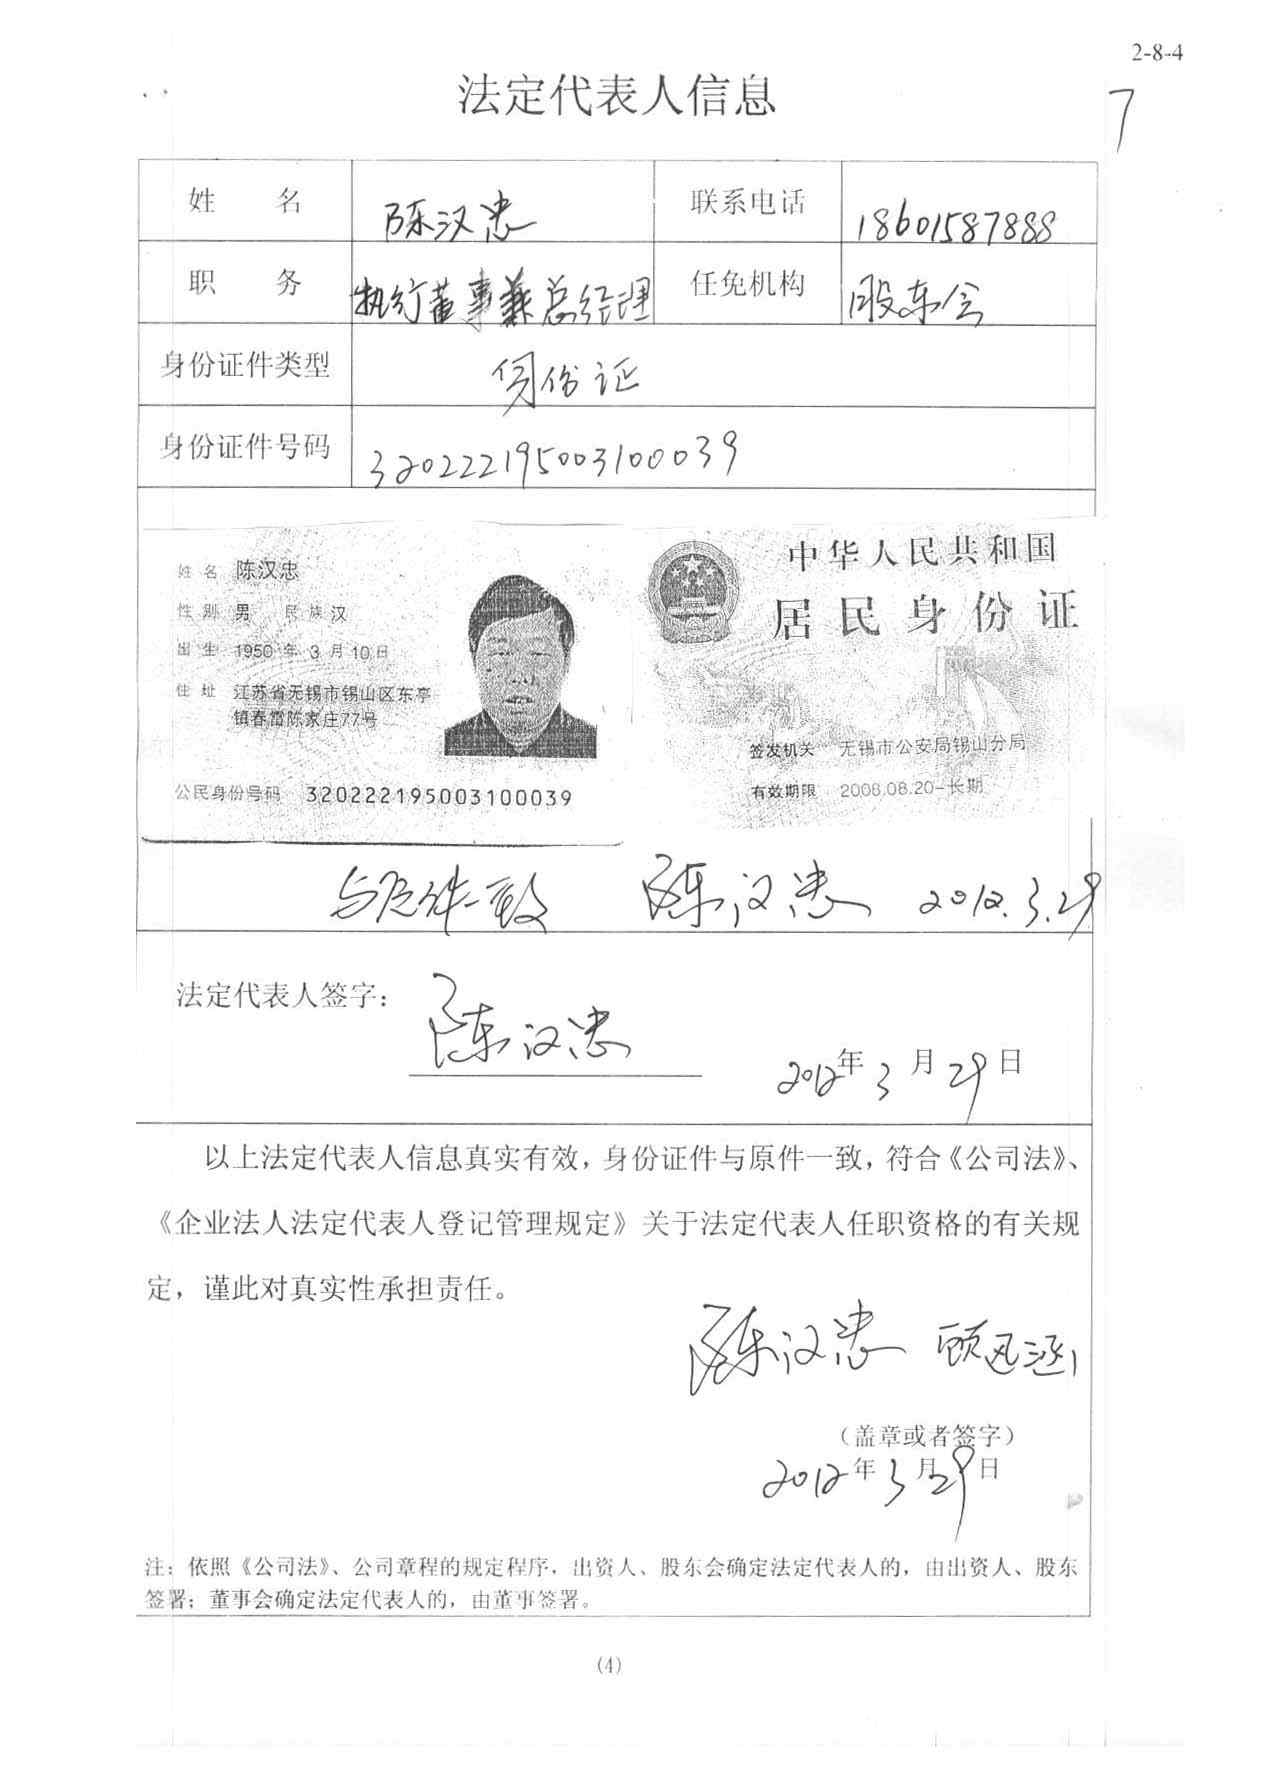 2-8-4
7
法定代表人信息
姓 名 陈汉忠 联系电话 18601587888
职 务 执行董事兼总经理 任免机构 股东会
身份证件类型 身份证
身份证件号码 320222195003100039
姓 名 陈汉忠
性 别 男 民 族 汉
出 生 1950 年 3 月 10 日
住 址 江苏省无锡市锡山区东亭
镇春雷陈家庄77号
公民身份号码 320222195003100039
中华人民共和国
居民身份证
签发机关 无锡市公安局锡山分局
有效期限 2006.08.20-长期
与原件一致 陈汉忠 2012.3.29
法定代表人签字: 陈汉忠
2012年3月29日
以上法定代表人信息真实有效,身份证件与原件一致,符合《公司法》、
《企业法人法定代表人登记管理规定》关于法定代表人任职资格的有关规
定,谨此对真实性承担责任。
陈汉忠 顾
(盖章或者签字)
2012年3月29日
注:依照《公司法》、公司章程的规定程序,出资人、股东会确定法定代表人的,由出资人、股东
签署;董事会确定法定代表人的,由董事签署。
(4)